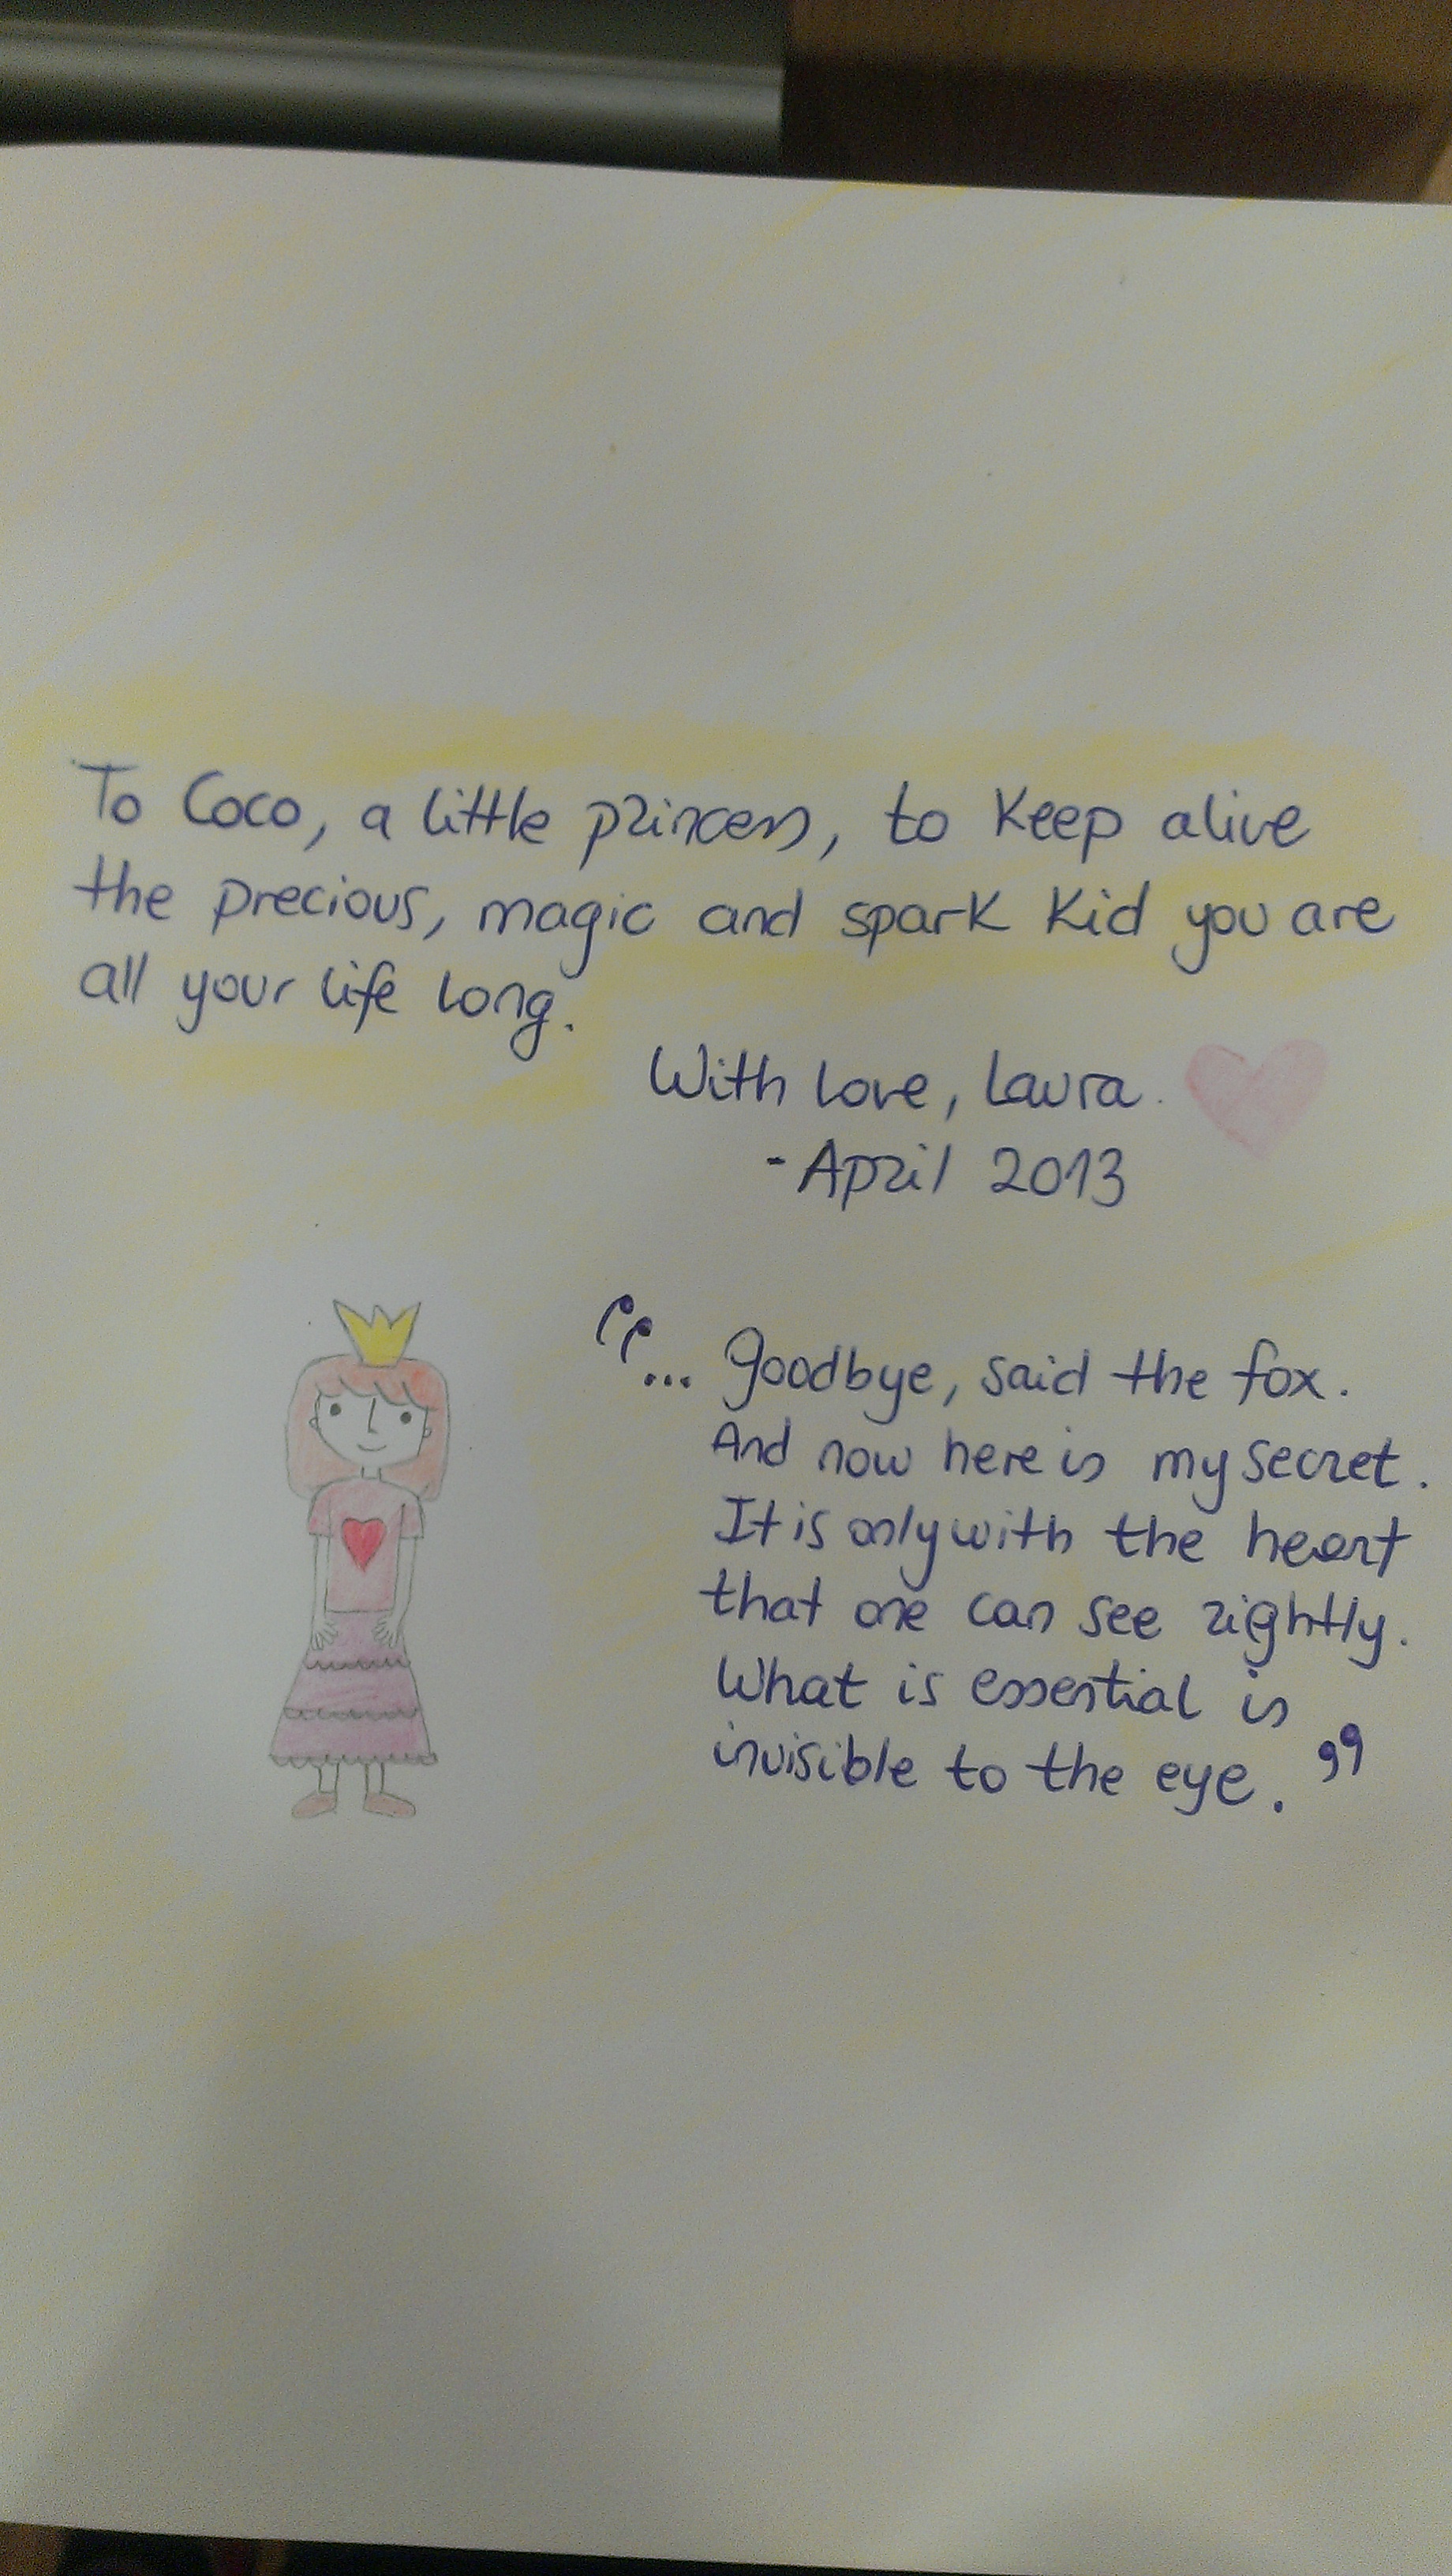 To Coco, a little princess, to Keep alive
the precious, magic and spark Kid you are
all your life long.
With love, Laura.
- April 2013
“... Goodbye, said the fox.
And now here is my secret.
It is only with the heart
that one can see rightly.
What is essential is
invisible to the eye.”